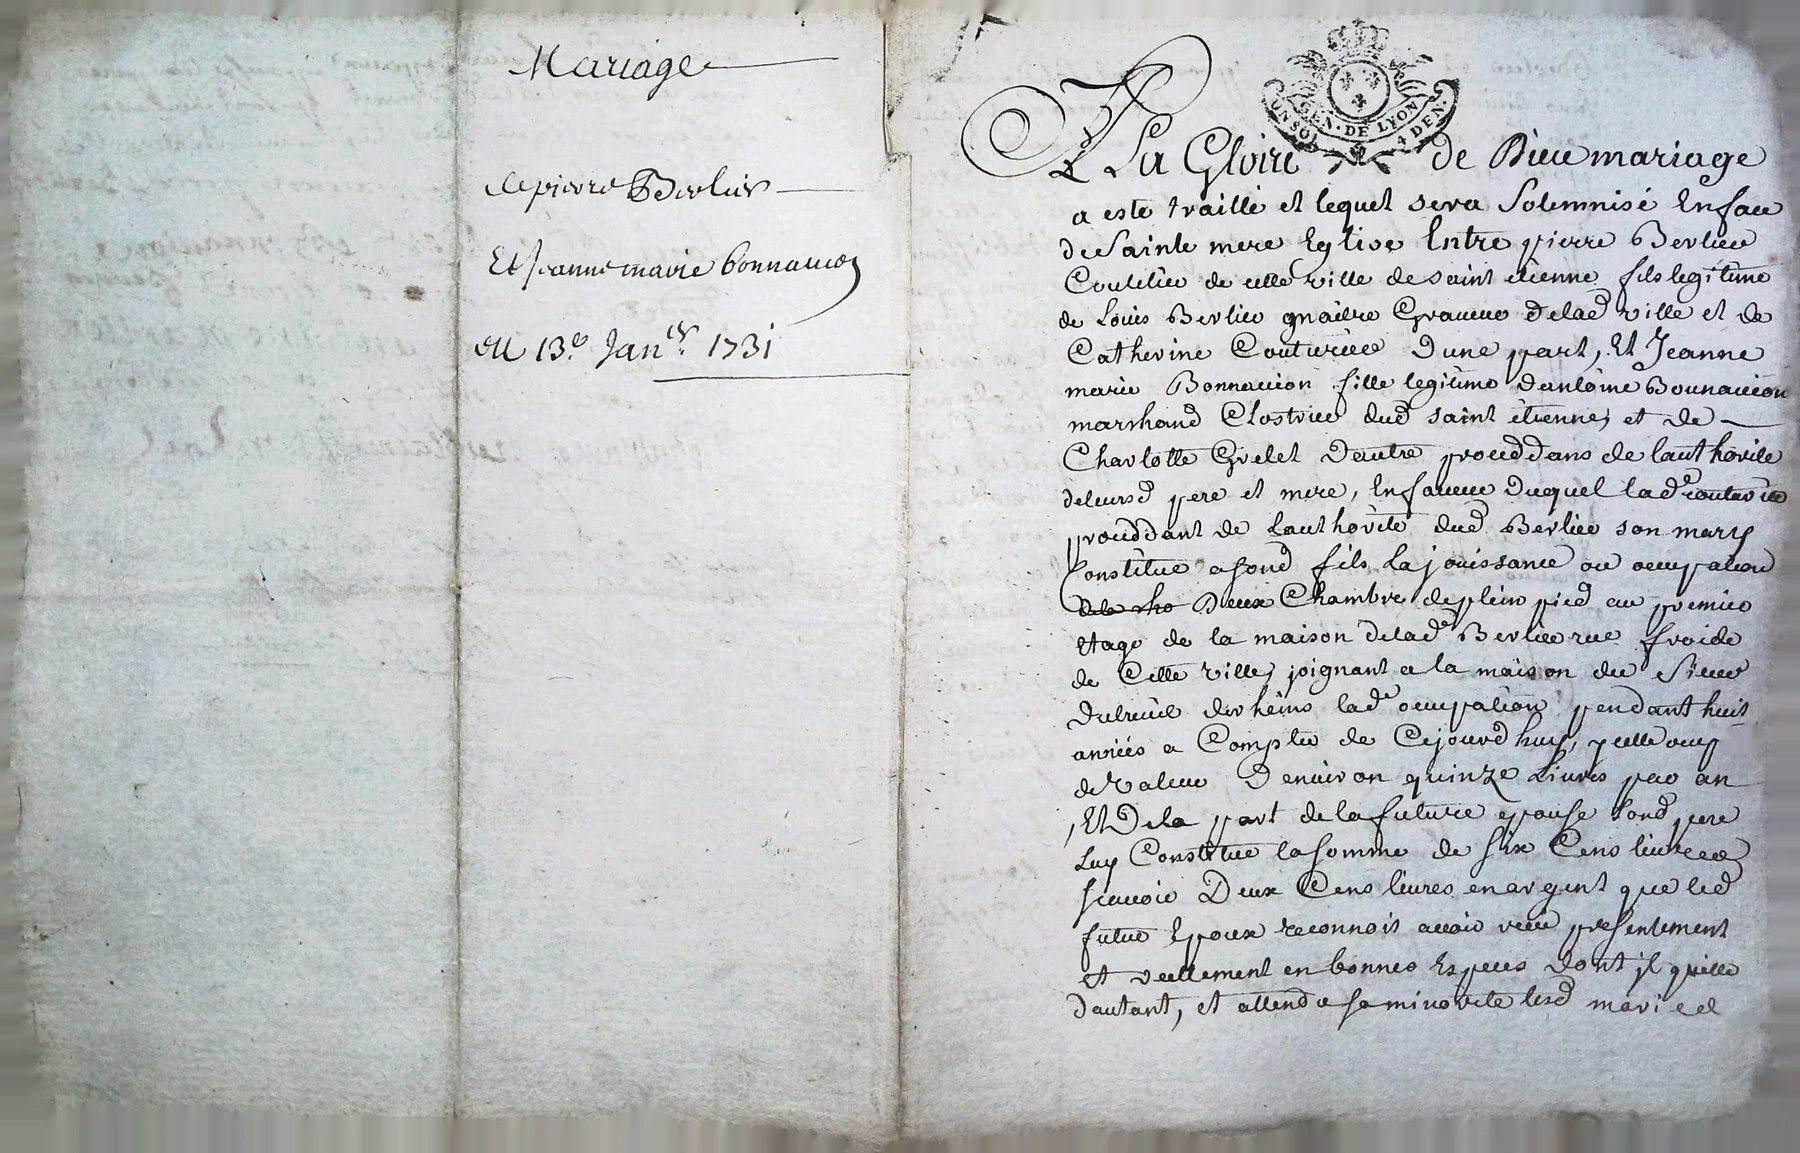 Mariage
de pierre Berlier
Et Jeanne marie bonnavion
du 13.e Jan.er 1731
GEN. DE LYON
UN SOL 4 DEN.
A La Gloire de Dieu mariage
a este traitté et lequel sera Solemnisé En face
de Sainte mere Eglise Entre pierre Berlier
Coutelier de cette ville de saint etienne fils legitime
de Louis Berlier maitre Graveur de lad ville et de
Catherine Couturier d'une part, Et Jeanne
marie Bonnavion fille legitime d'antoine Bonnavion
marchand Clostrier dud saint etienne, et de
Charlotte Grelet d'autre proceddans de l'authorite
de leursd pere et mere, En faveur duquel lad.e couturier
proceddant de l'authorité dud Berlier son mary
Constitue a sond fils la jouissance ou occupation
de la cha Deux Chambre de plein pied au premier
etage de la maison de lad.e Berlier rue froide
de Cette ville, joignant a la maison du Sieur
dutreüil lad.e occupation pendant huit
années a Compter de Cejourd'huy, ycelle occup
de valeur d'environ quinze Livres par an
, Et De la part de la future epouse sond pere
Luy Constitue la somme de Six Cens livres
scavoir Deux Cens livres en argent que led
futur Epoux reconnoit avoir reçu presentement
et reellement en bonnes Especes dont jl quitte
d'autant, et attendu sa minorité lesd mariee